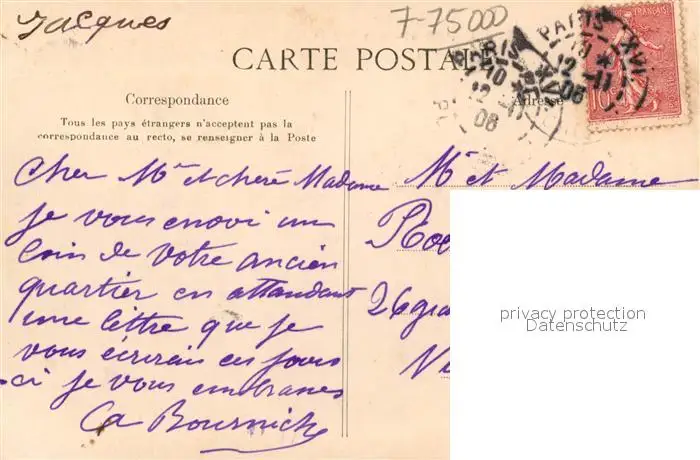 Jacques
7-75000
CARTE POSTALE
Correspondance
Adresse
Tous les pays étrangers n'acceptent pas la
correspondance au recto, se renseigner à la Poste
PARIS XVI
18 *
12 -11
08
PARIS XVI
10 *
12 -11
08
10
Cher Mr et chere Madame
je vous envoi un
coin de votre ancien
quartier en attendant
une lettre que je
vous écrirais ces jours
-ci je vous embrasses
Ca Bournich
Mr et Madame
Roc
26 gra
privacy protection
Datenschutz